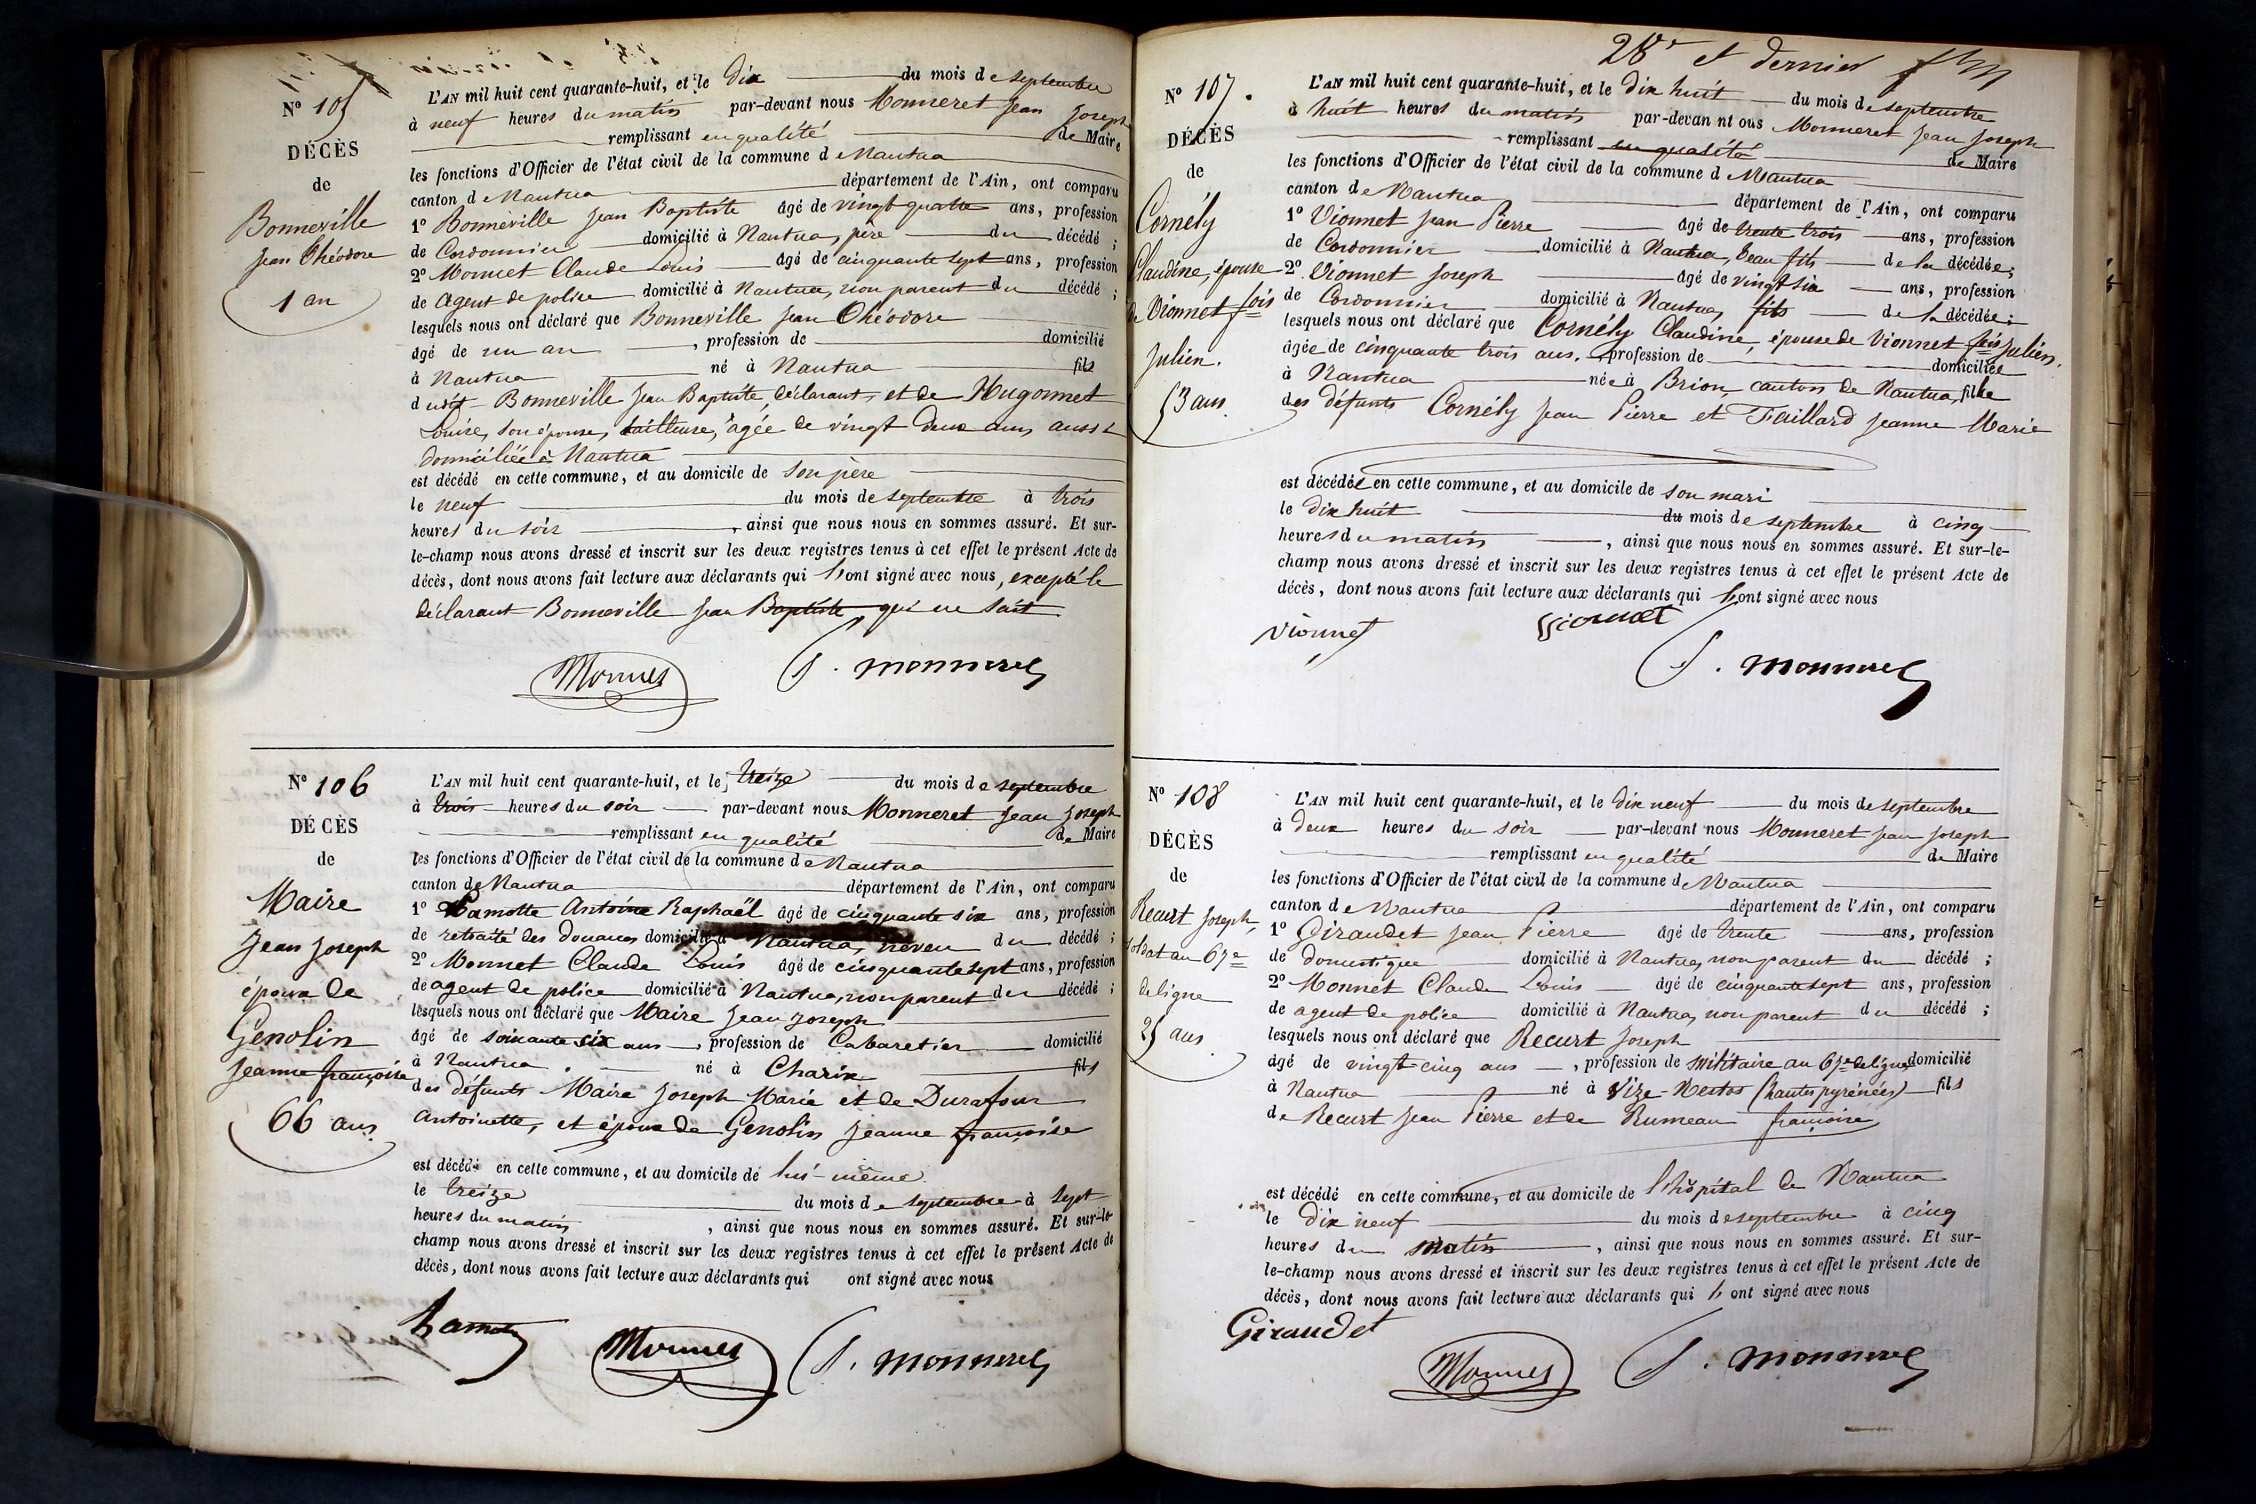 N° 105
DÉCÈS
de
Bonneville
Jean Théodore
1 an
L'AN mil huit cent quarante-huit, et le Dix du mois de septembre
à neuf heures du matin par-devant nous Monneret Jean Joseph
remplissant en qualité de Maire
les fonctions d'Officier de l'état civil de la commune de Nantua
canton de Nantua département de l'Ain, ont comparu
1° Bonneville Jean Baptiste âgé de vingt quatre ans, profession
de Cordonnier domicilié à Nantua, père du décédé ;
2° Monnet Claude Louis âgé de cinquante sept ans, profession
de agent de police domicilié à Nantua, non parent du décédé ;
lesquels nous ont déclaré que Bonneville Jean Théodore
âgé de un an , profession de domicilié
à Nantua né à Nantua fils
dudit Bonneville Jean Baptiste, déclarant, et de Hugonnet
Louise, son épouse, tailleuse, âgée de vingt deux ans, aussi
domiciliée à Nantua
est décédé en cette commune, et au domicile de son père
le neuf du mois de septembre à trois
heures du soir , ainsi que nous nous en sommes assuré. Et sur-
le-champ nous avons dressé et inscrit sur les deux registres tenus à cet effet le présent Acte de
décès, dont nous avons fait lecture aux déclarants qui l'ont signé avec nous, excepté le
déclarant Bonneville Jean Baptiste qui ne sait
Monnet J. Monneret
N° 106
DÉCÈS
de
Maire
Jean Joseph
époux de
Genolin
Jeanne françoise
66 ans
L'AN mil huit cent quarante-huit, et le treize du mois de septembre
à trois heures du soir par-devant nous Monneret Jean Joseph
remplissant en qualité de Maire
les fonctions d'Officier de l'état civil de la commune de Nantua
canton de Nantua département de l'Ain, ont comparu
1° Lamotte Antoine Raphaël âgé de cinquante six ans, profession
de retraité des douanes domicilié à Nantua, neveu du décédé ;
2° Monnet Claude Louis âgé de cinquante sept ans, profession
de agent de police domicilié à Nantua, non parent du décédé ;
lesquels nous ont déclaré que Maire Jean Joseph
âgé de soixante six ans , profession de Cabaretier domicilié
à Nantua né à Charix fils
des défunts Maire Joseph Marie et de Durafour
Antoinette, et époux de Genolin Jeanne françoise
est décédé en cette commune, et au domicile de lui-même
le treize du mois de septembre à sept
heures du matin , ainsi que nous nous en sommes assuré. Et sur-le-
champ nous avons dressé et inscrit sur les deux registres tenus à cet effet le présent Acte de
décès, dont nous avons fait lecture aux déclarants qui ont signé avec nous
Monnet J. Monneret
28e et dernier
N° 107.
DÉCÈS
de
Cornély
Claudine, épouse
de Vionnet fois
Julien.
53 ans.
L'AN mil huit cent quarante-huit, et le dix huit du mois de septembre
à huit heures du matin par-devan nt ous Monneret Jean Joseph
remplissant en qualité de Maire
les fonctions d'Officier de l'état civil de la commune de Nantua
canton de Nantua département de l'Ain, ont comparu
1° Vionnet Jean Pierre âgé de trente trois ans, profession
de Cordonnier domicilié à Nantua, beau fils de la décédée ;
2° Vionnet Joseph âgé de vingt six ans, profession
de Cordonnier domicilié à Nantua, fils de la décédée ;
lesquels nous ont déclaré que Cornély Claudine, épouse de Vionnet fois Julien,
âgée de cinquante trois ans, profession de domiciliée
à Nantua née à Brion, canton de Nantua, fille
des défunts Cornély Jean Pierre et Taillard Jeanne Marie
est décédée en cette commune, et au domicile de son mari
le dix huit du mois de septembre à cinq
heures du matin , ainsi que nous nous en sommes assuré. Et sur-le-
champ nous avons dressé et inscrit sur les deux registres tenus à cet effet le présent Acte de
décès, dont nous avons fait lecture aux déclarants qui l'ont signé avec nous
Vionnet Vionnet
J. Monneret
N° 108
DÉCÈS
de
Recurt Joseph,
soldat au 67e
de ligne
25 ans
L'AN mil huit cent quarante-huit, et le dix neuf du mois de septembre
à deux heures du soir par-devant nous Monneret Jean Joseph
remplissant en qualité de Maire
les fonctions d'Officier de l'état civil de la commune de Nantua
canton de Nantua département de l'Ain, ont comparu
1° Giraudet Jean Pierre âgé de trente ans, profession
de domestique domicilié à Nantua, non parent du décédé ;
2° Monnet Claude Louis âgé de cinquante sept ans, profession
de agent de police domicilié à Nantua, non parent du décédé ;
lesquels nous ont déclaré que Recurt Joseph
âgé de vingt cinq ans , profession de militaire au 67e de ligne domicilié
à Nantua né à Vize-Nestos (hautes pyrénées) fils
de Recurt Jean Pierre et de Rumeau françoise
est décédé en cette commune, et au domicile de l'hôpital de Nantua
le dix neuf du mois de septembre à cinq
heures du matin , ainsi que nous nous en sommes assuré. Et sur-
le-champ nous avons dressé et inscrit sur les deux registres tenus à cet effet le présent Acte de
décès, dont nous avons fait lecture aux déclarants qui l'ont signé avec nous
Giraudet
Monnet J. Monneret